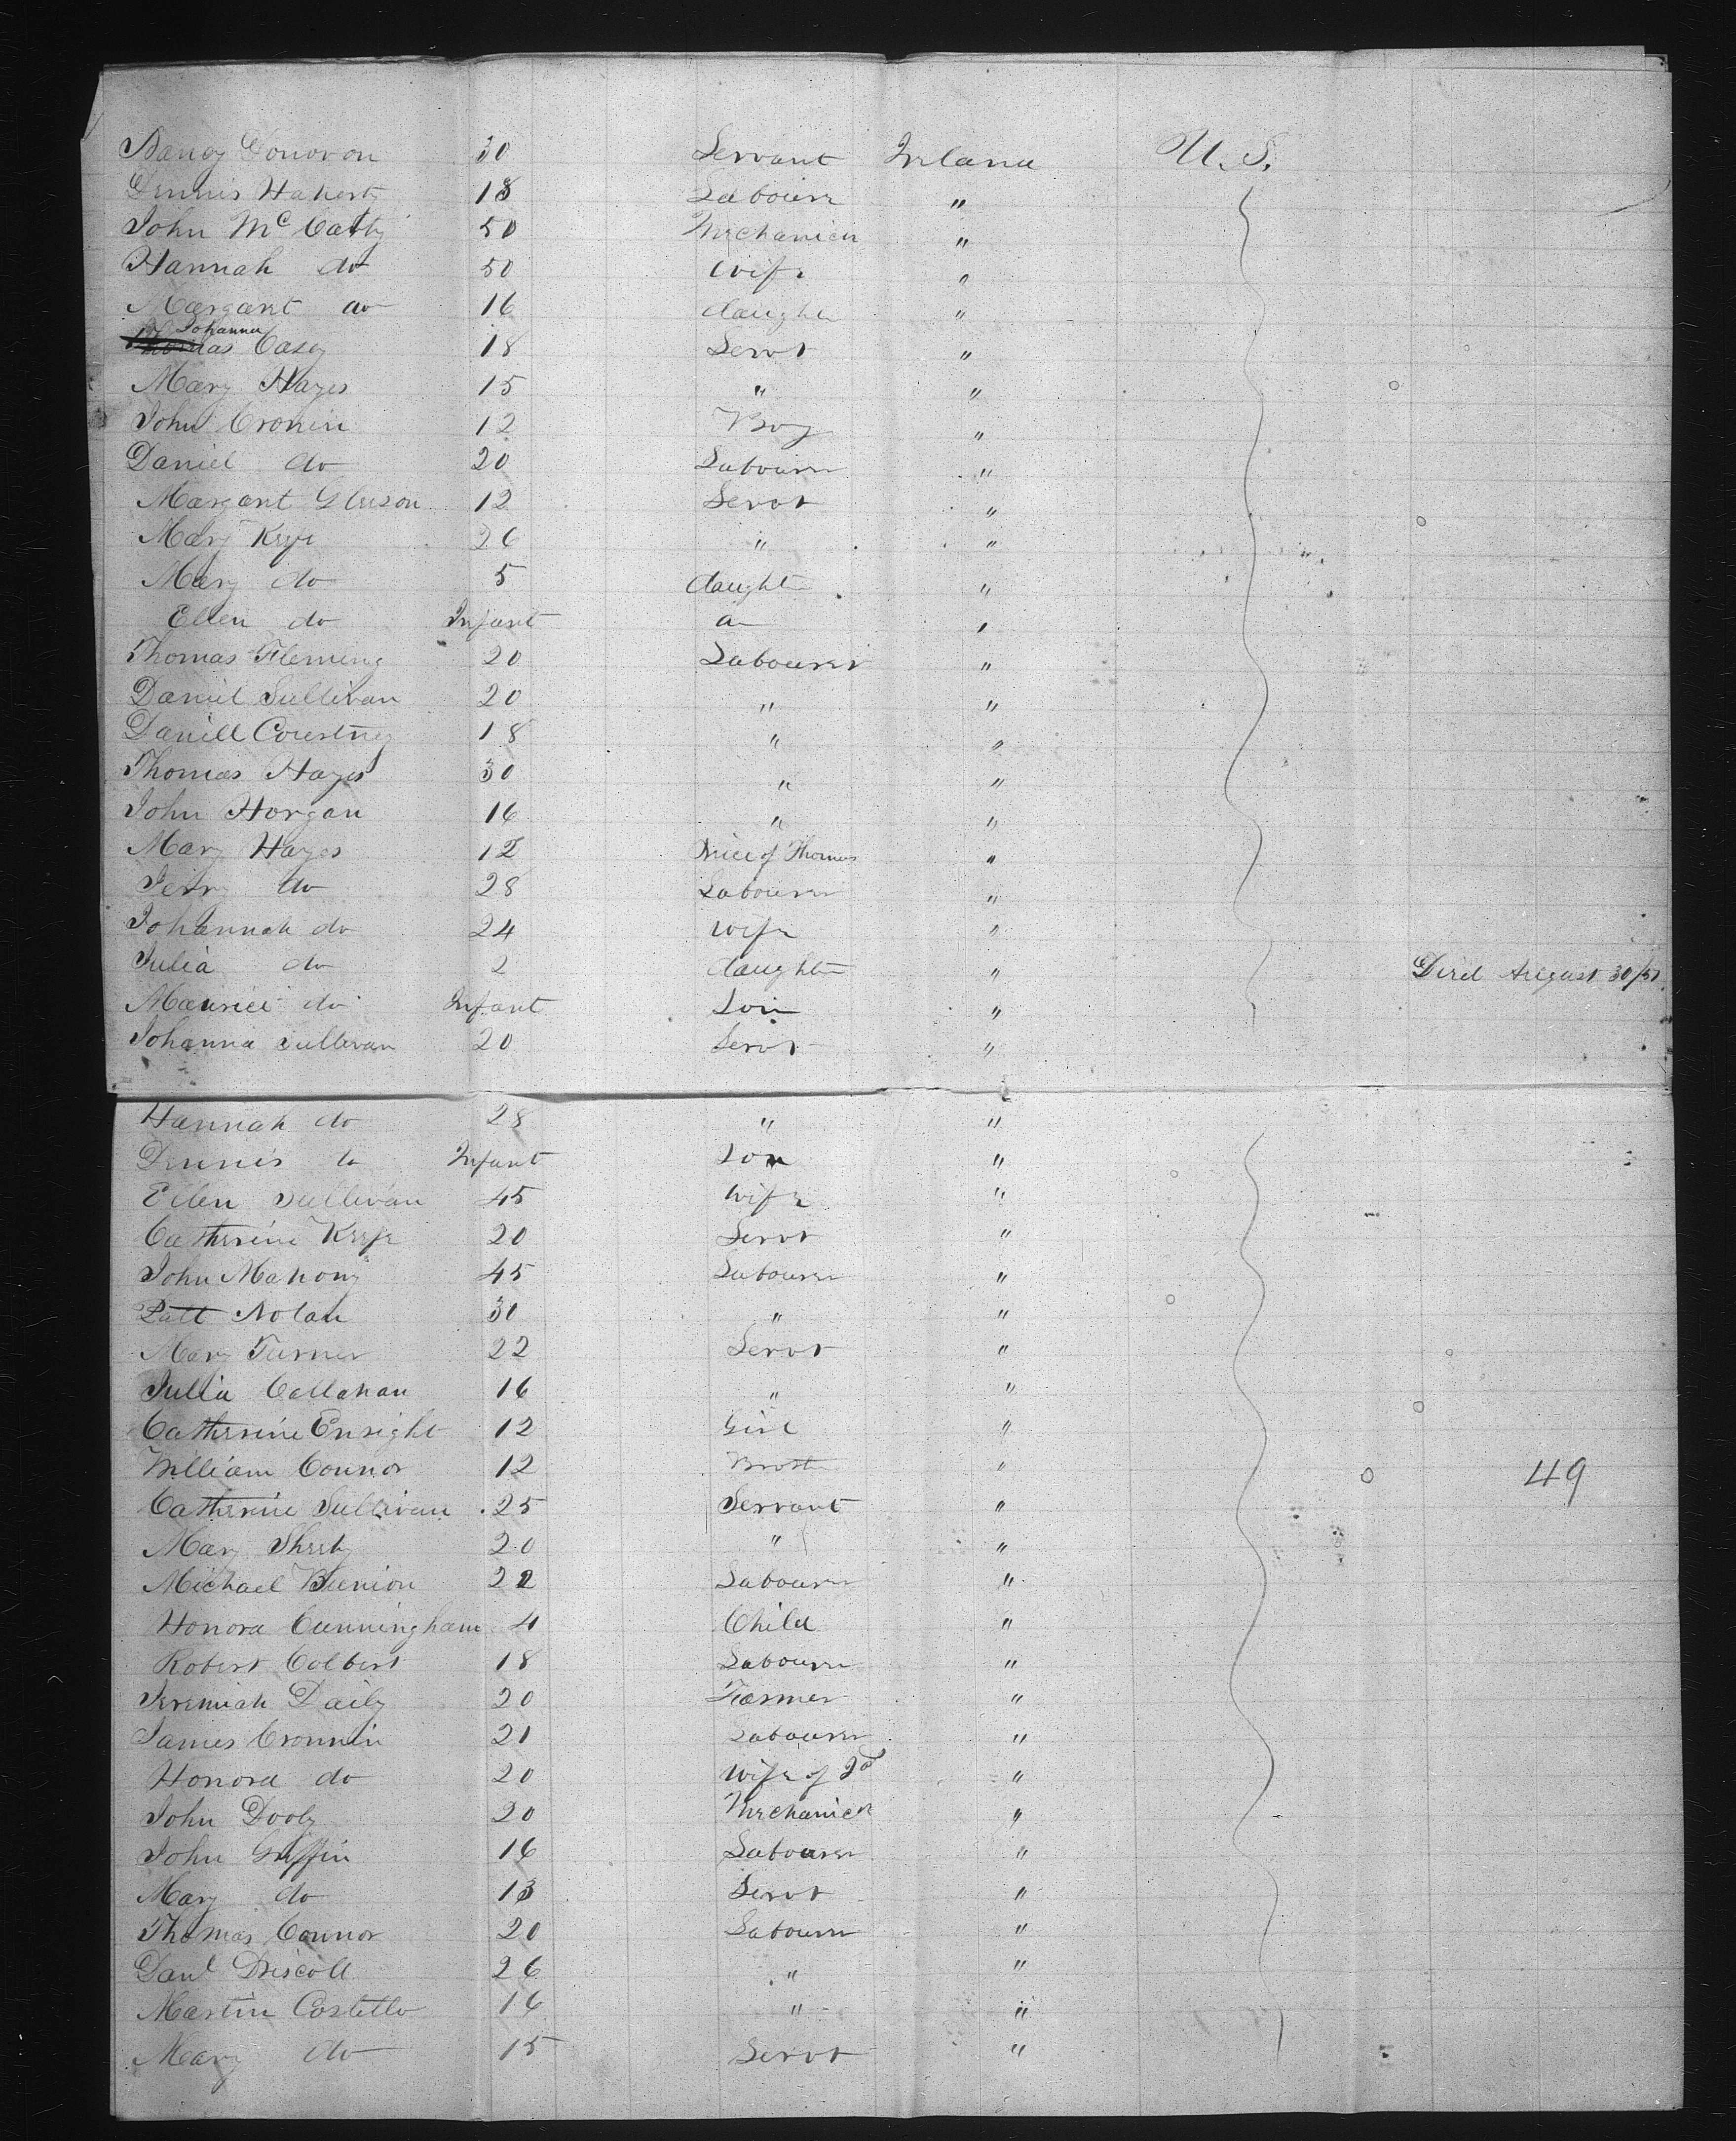 Nancy Donovon 30 Servant Ireland U. S.
Dennis Haherty 18 Labourer "
John McCarthy 50 Mechanick "
Hannah do 50 Wife "
Margaret do 16 daughter "
Johanna
Thomas Casey 18 Servt "
Mary Hayes 15 " "
John Cronin 12 Boy "
Daniel do 20 Labourer "
Margaret Gleeson 12 Servt "
Mary Keefe 26 " "
Mary do 5 daughter "
Ellen do Infant "
Thomas Fleming 20 Labourer "
Daniel Sullivan 20 " "
Daniell Courtney 18 " "
Thomas Hayes 30 " "
John Horgan 16 " "
Mary Hayes 12 Niece of Thomas "
Jerry do 28 Labourer "
Johannah do 24 wife "
Julia do 2 daughter " Died August 30/51
Maurice do Infant Son "
Johanna Sullivan 20 Servt "
Hannah do 28 " "
Dennis do Infant Son "
Ellen Sullivan 45 Wife "
Catherine Keefe 20 Servt "
John Mahony 45 Labourer "
Patt Nolan 30 " "
Mary Turner 22 Servt "
Julia Callahan 16 " "
Catherine Enright 12 Girl "
William Connor 12 Broth " 49
Catherine Sullivan 25 Servant "
Mary Sheehy 20 " "
Michael Bunion 22 Labourer "
Honora Cunningham 4 Child "
Robert Colbert 18 Labourer "
Jeremiah Daily 20 Farmer "
James Cronnin 21 Labourer "
Honora do 20 Wife of Do "
John Dooly 20 Mechanick "
John Griffin 16 Labourer "
Mary do 13 Servt "
Thomas Connor 20 Labourer "
Danl Driscoll 26 " "
Martin Costello 16 " "
Mary do 15 Servt "